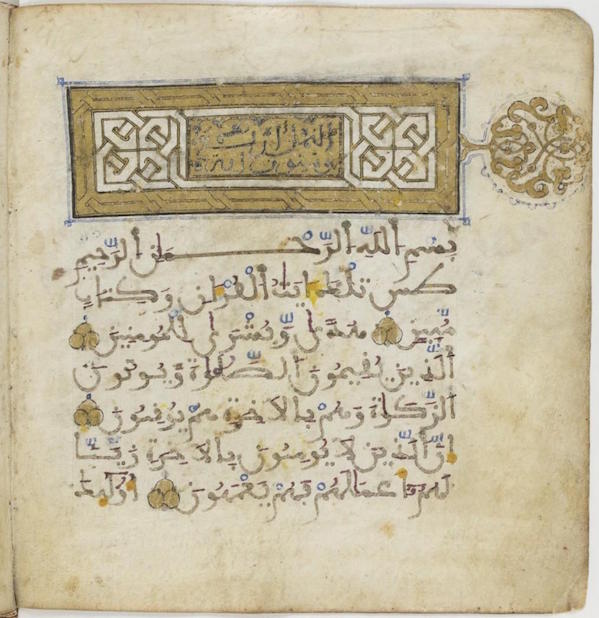 النمل
وتسعون آية
بِسْمِ اللَّهِ الرَّحْمَنِ الرَّحِيمِ
طس تِلْكَ ءَايَتُ الْقُرْءَانِ وَكِتَابٍ
مُّبِينٍ هُدًى وَبُشْرَى لِلْمُومِنِينَ
الَّذِينَ يُقِيمُونَ الصَّلَوٰةَ وَيُوتُونَ
الزَّكَوٰةَ وَهُم بِالَاخِرَةِ هُمْ يُوقِنُونَ
إِنَّ الَّذِينَ لَا يُومِنُونَ بِالَاخِرَةِ زَيَّنَّا
لَهُمْ أَعْمَٰلَهُمْ فَهُمْ يَعْمَهُونَ أُوْلَٰئِكَ